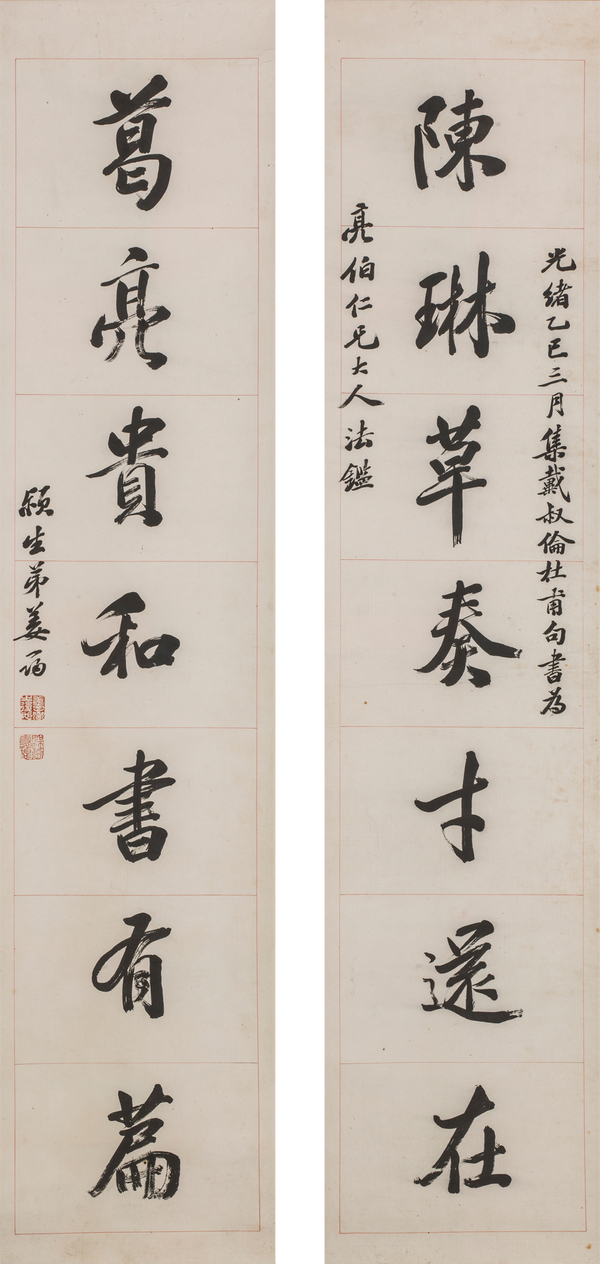 陳琳草奏才還在
光緒乙巳三月集戴叔倫杜甫句書為
亮伯仁兄大人法鑑
葛亮貴和書有篇
穎生弟姜筠